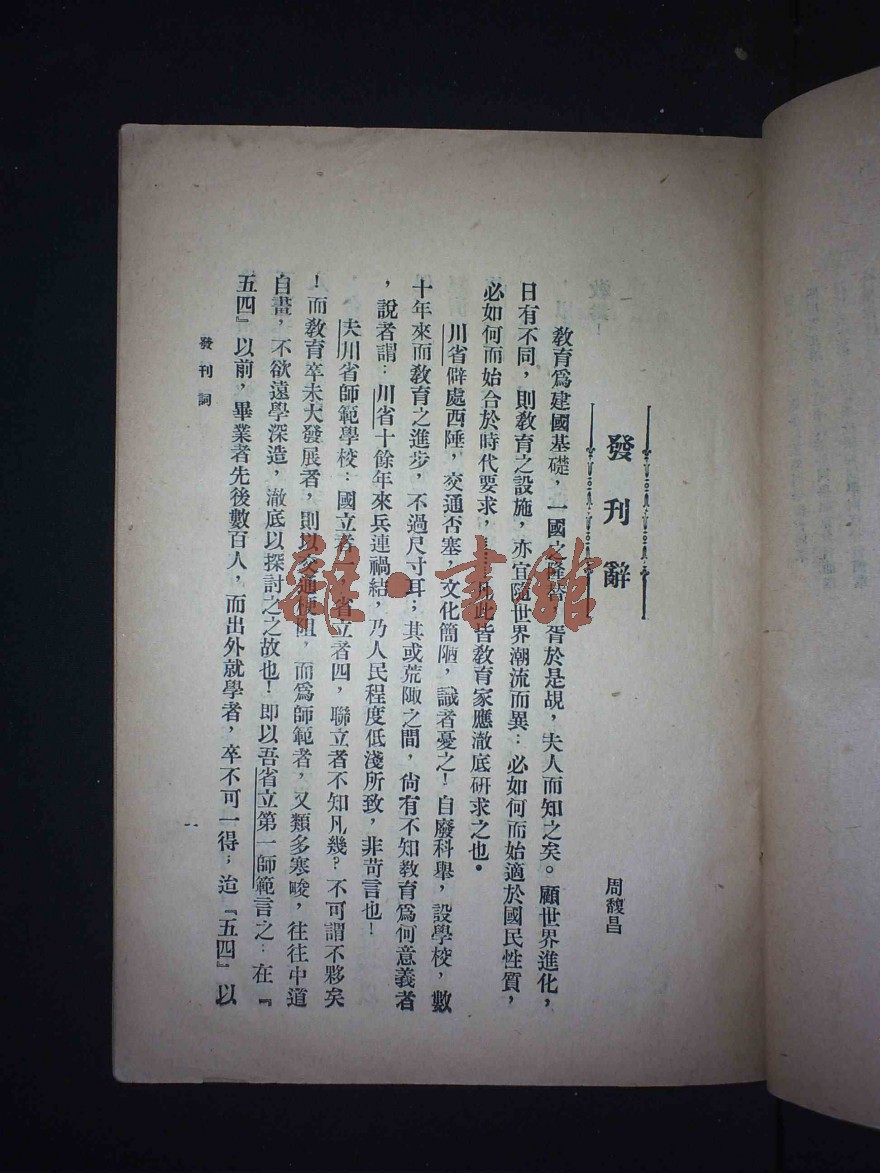 發刊辭
周馥昌
教育爲建國基礎，一國之隆替，胥於是覘，夫人而知之矣。顧世界進化，
日有不同，則教育之設施，亦宜隨世界潮流而異：必如何而始適於國民性質，
必如何而始合於時代要求，……凡此皆教育家應澈底研求之也。
川省僻處西陲，交通否塞，文化簡陋，識者憂之！自廢科舉，設學校，數
十年來而教育之進步，不過尺寸耳；其或荒陬之間，尙有不知教育爲何意義者
，說者謂：川省十餘年來兵連禍結，乃人民程度低淺所致，非苛言也！
夫川省師範學校：國立者一，省立者四，聯立者不知凡幾？不可謂不夥矣
！而教育卒未大發展者，則以交通梗阻，而爲師範者，又類多寒畯，往往中道
自畫，不欲遠學深造，澈底以探討之之故也！即以吾省立第一師範言之：在『
五四』以前，畢業者先後數百人，而出外就學者，卒不可一得；迨『五四』以
發刊詞
一
雜·書館